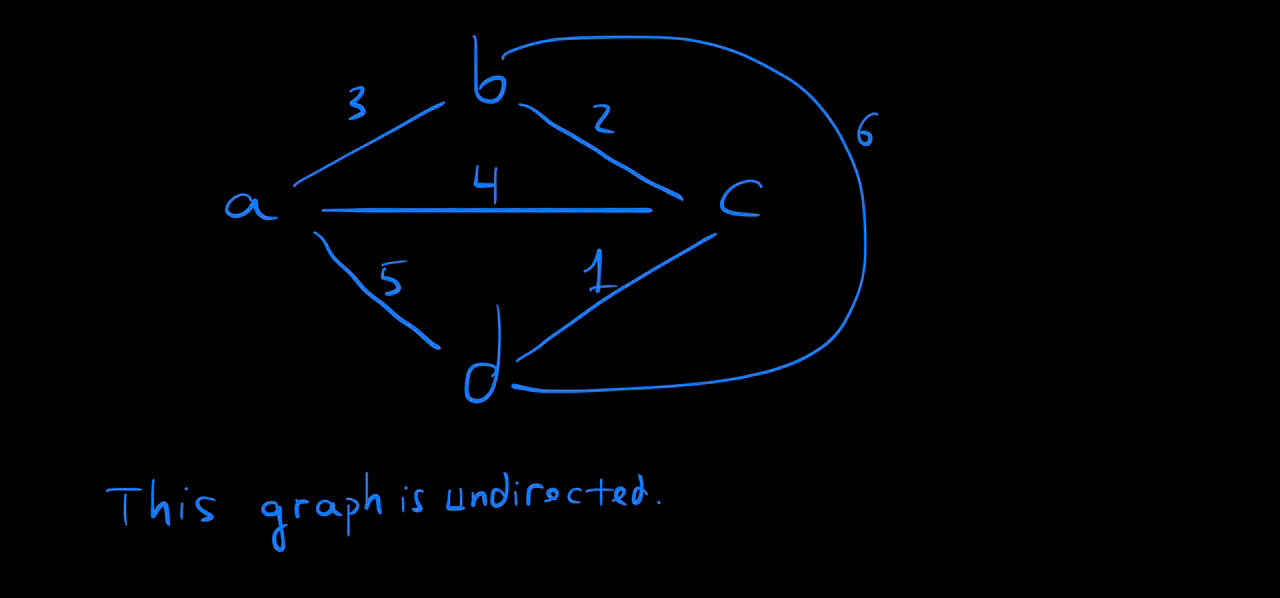 b
3
2
6
4
a
c
5
1
d
This graph is undirected.